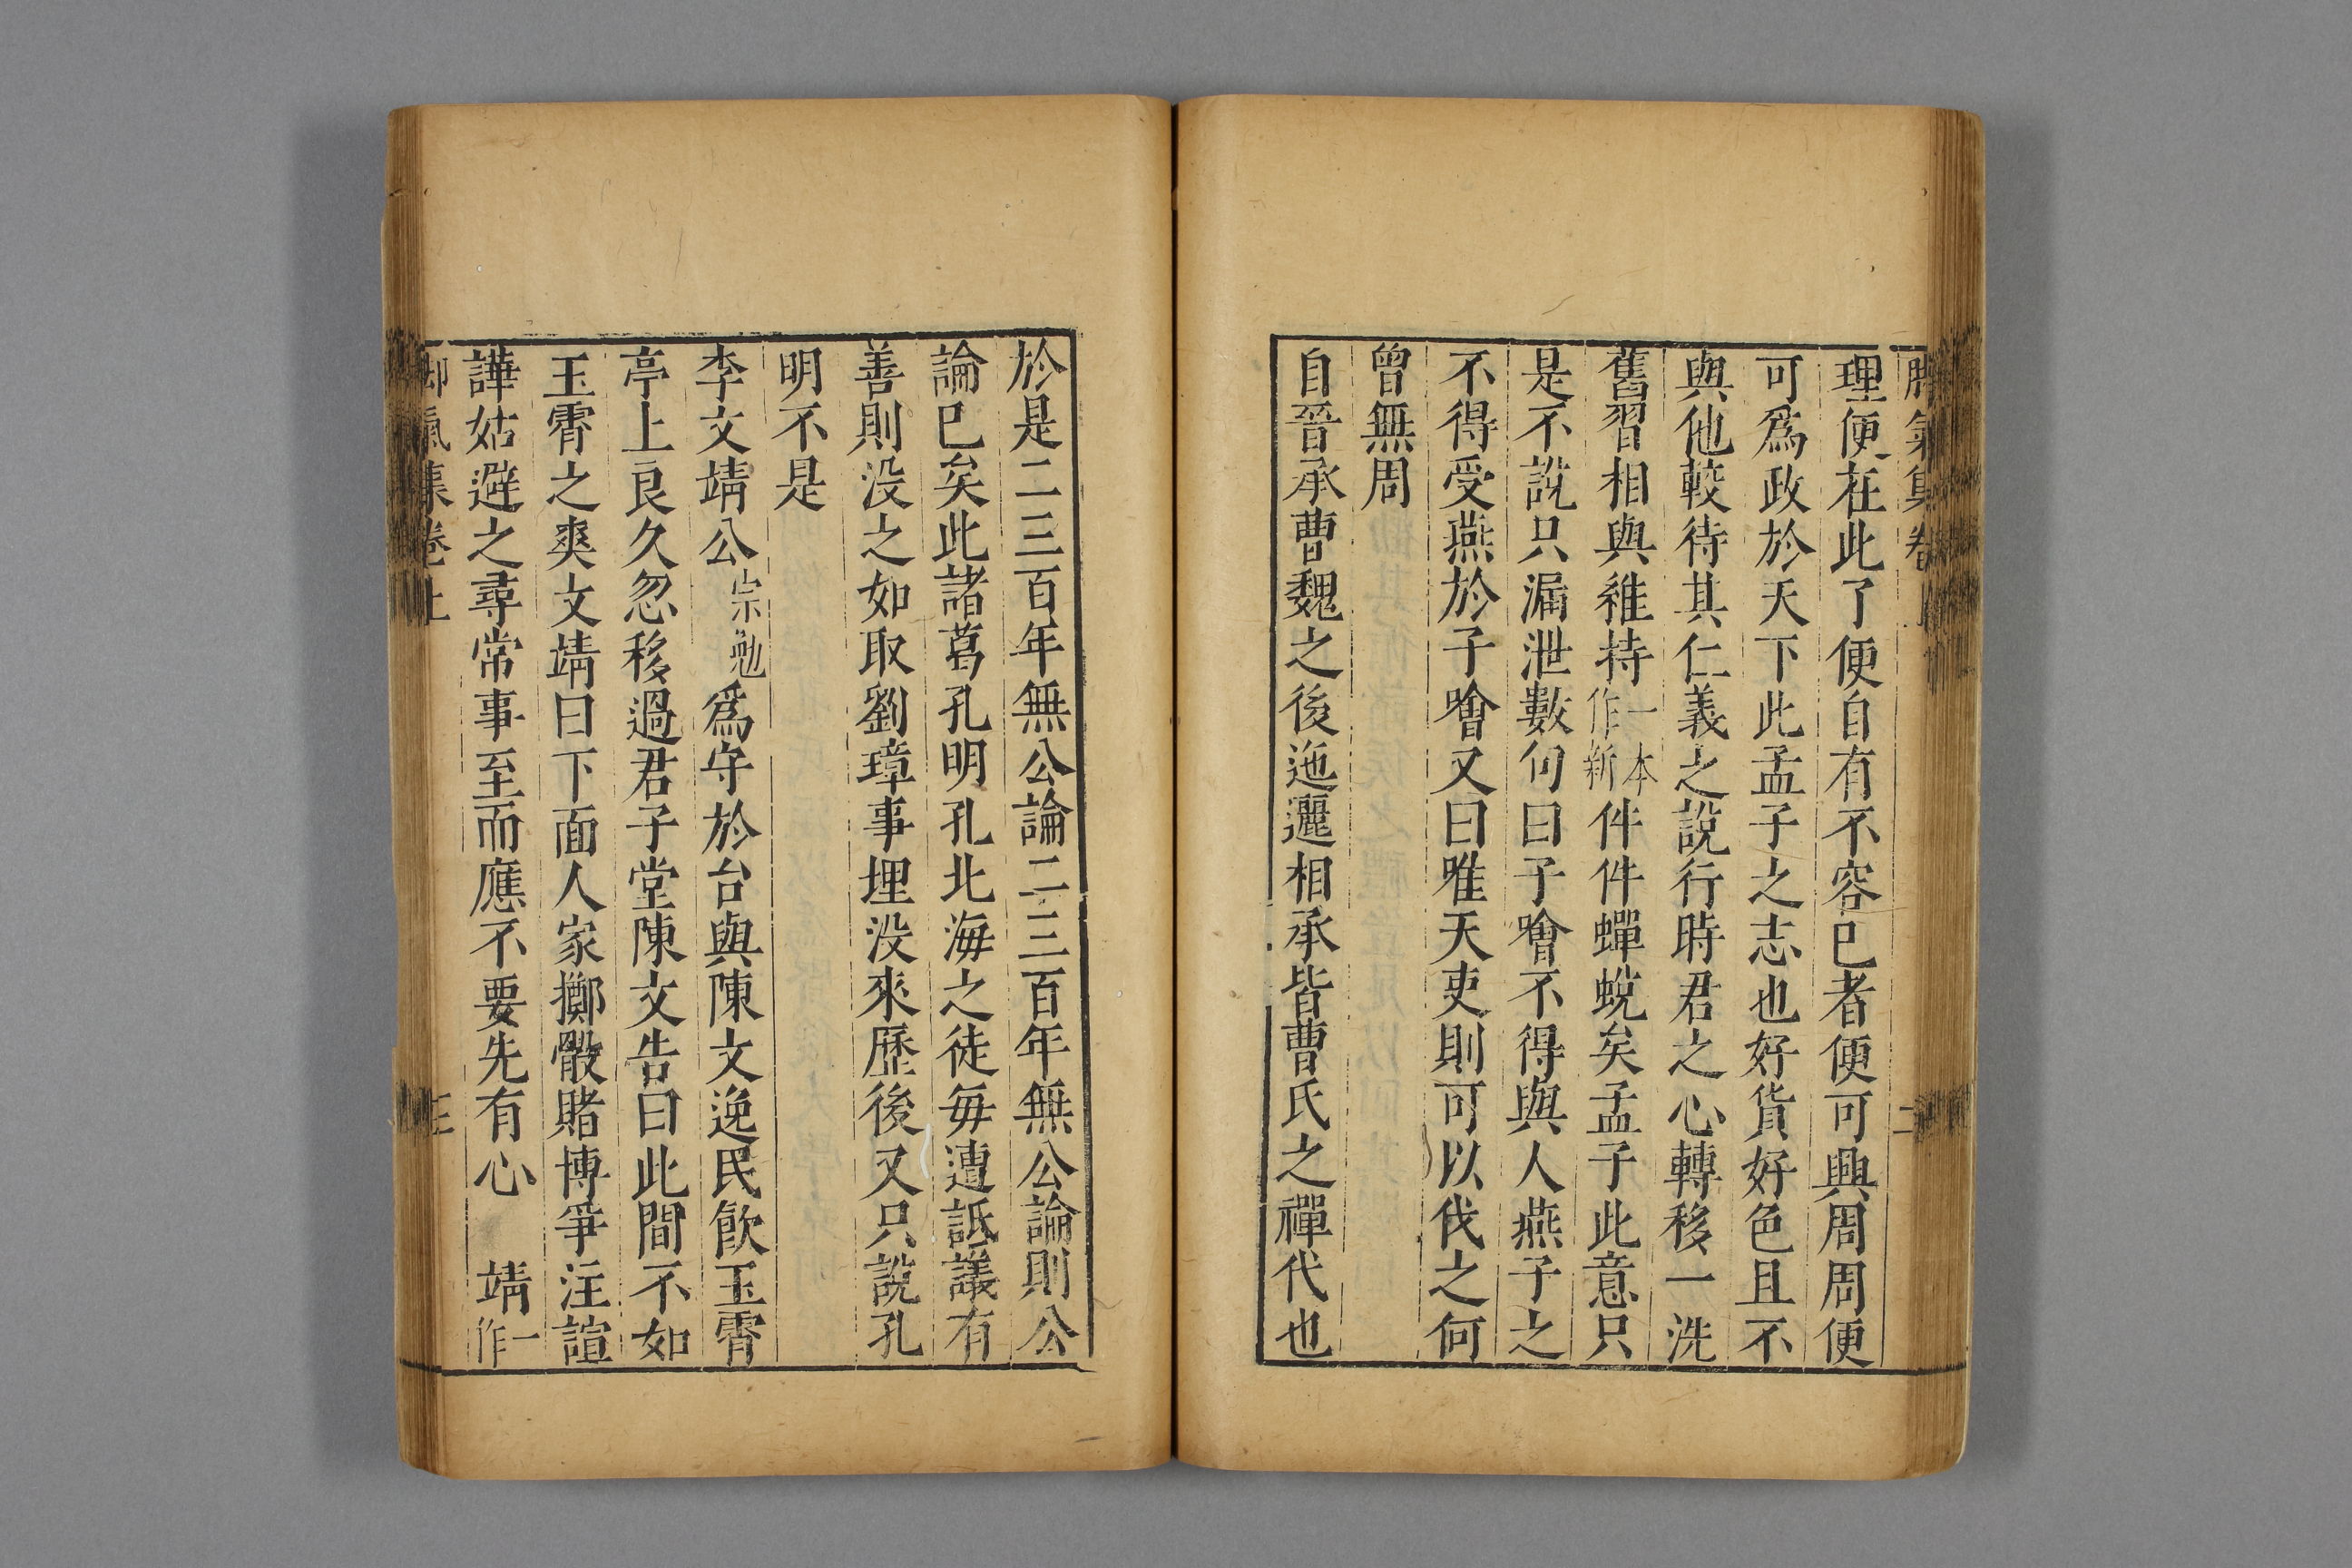 脚氣集卷上 二
理便在此了便自有不容已者便可興周周便
可爲政於天下此孟子之志也好貨好色且不
與他較待其仁義之說行時君之心轉移一洗
舊習相與維持一本作新件件蟬蛻矣孟子此意只
是不說只漏泄數句曰子噲不得與人燕子之
不得受燕於子噲又曰唯天吏則可以伐之何
曾無周
自晉承曹魏之後迤邐相承皆曹氏之禪代也
於是二三百年無公論二三百年無公論則公
論已矣此諸葛孔明孔北海之徒每遭詆議有
善則没之如取劉璋事埋没來歷後又只說孔
明不是
李文靖公宗勉爲守於台與陳文逸民飲玉霄
亭上良久忽移過君子堂陳文告曰此間不如
玉霄之爽文靖曰下面人家擲骰賭博爭注諠
譁姑避之尋常事至而應不要先有心 靖一作
脚氣集卷上 三